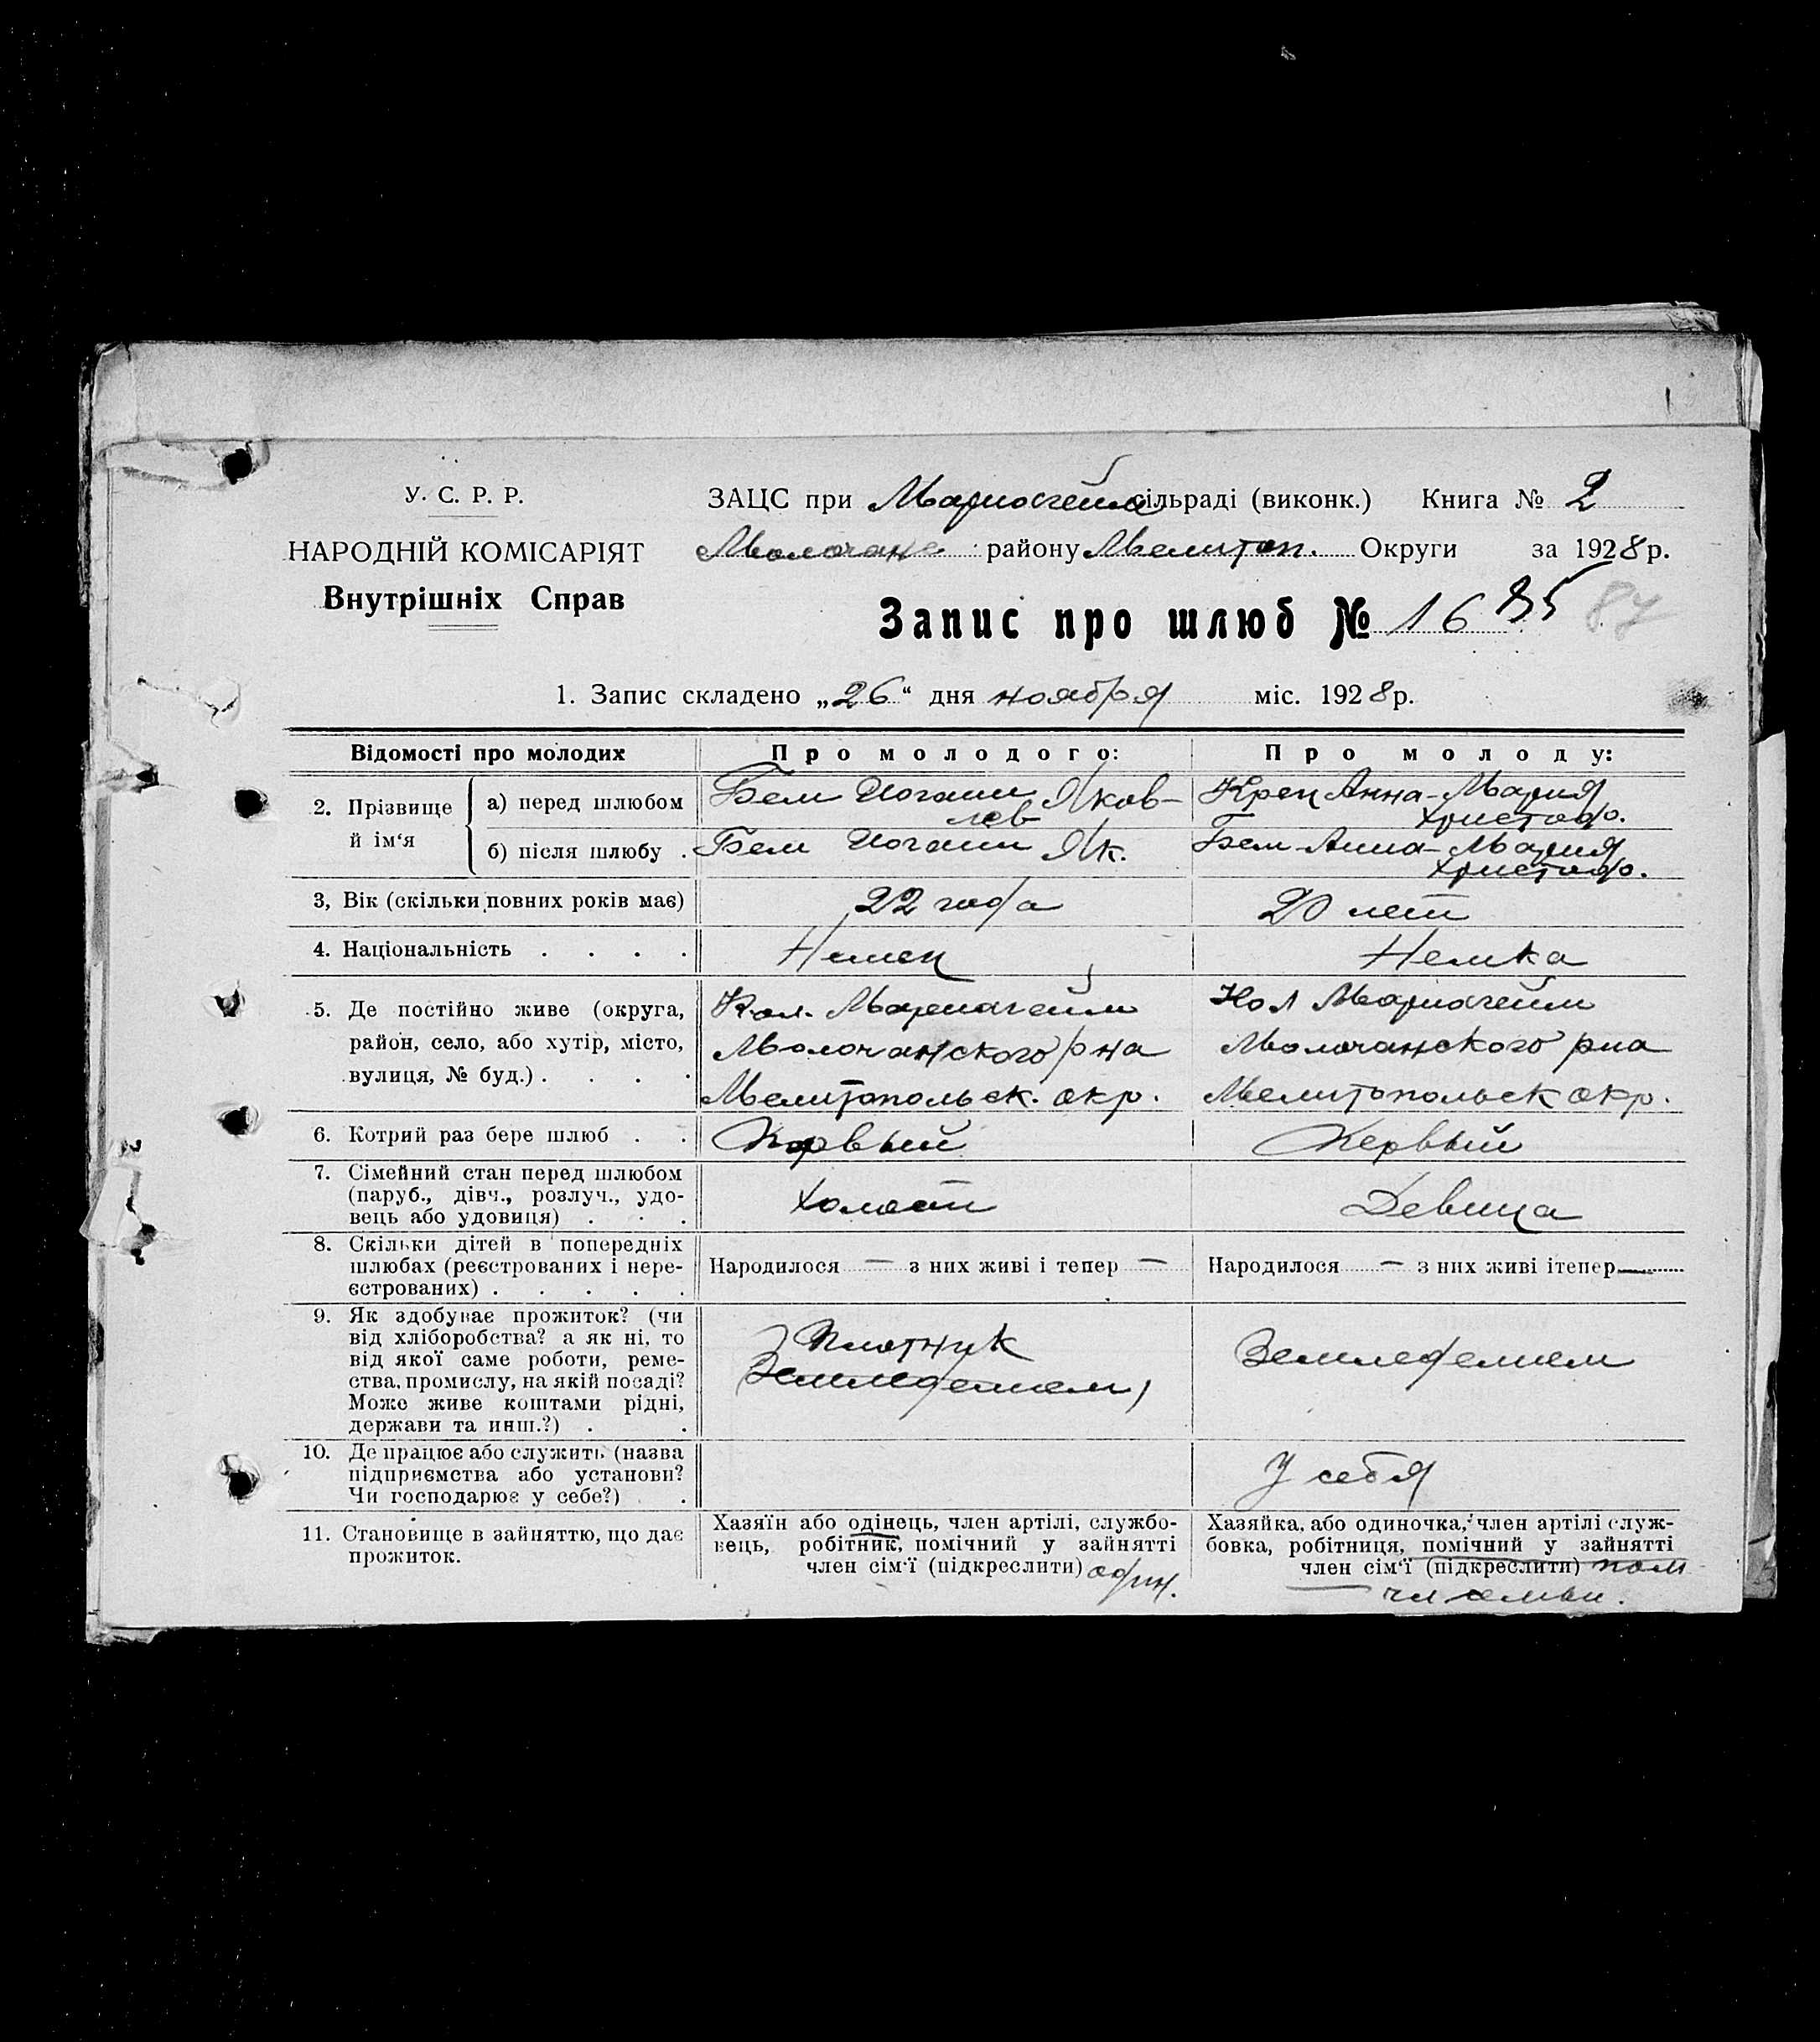 У. С. Р. Р.
НАРОДНІЙ КОМІСАРІЯТ
Внутрішніх Справ
ЗАЦС при Мариогейм сільраді (виконк.) Книга № 2
Молочанс району Мелитоп. Округи за 1928 р.
Запис про шлюб № 16 85 87
1. Запис складено „26“ дня ноября міс. 1928 р.
Відомості про молодих
Про молодого:
Про молоду:
2. Прізвище й ім‘я
а) перед шлюбом
Бем Иоганн Яков-
лев
Крец Анна-Мария
Христоф.
б) після шлюбу .
Бем Иоганн Як.
Бем Анна-Мария
Христоф.
3, Вік (скільки повних років має)
22 года
20 лет
4. Національність . . . .
Немец
Немка
5. Де постійно живе (округа,
район, село, або хутір, місто,
вулиця, № буд.) . . . .
Кол. Мариагейм
Молочанского р на
Мелитопольск. окр.
Кол Мариогейм
Молочанского рна
Мелитопольск окр.
6. Котрий раз бере шлюб . .
Первый
Первый
7. Сімейний стан перед шлюбом
(паруб., дівч., розлуч., удо-
вець або удовиця) . . .
Холост
Девица
8. Скільки дітей в попередніх
шлюбах (реєстрованих і нере-
єстрованих) . . . . .
Народилося — з них живі і тепер —
Народилося — з них живі ітепер —
9. Як здобуває прожиток? (чи
від хліборобства? а як ні, то
від якої саме роботи, реме-
ства, промислу, на якій посаді?
Може живе коштами рідні,
держави та инш.?) . .
Плотник
Земледелием
Земледелием
10. Де працює або служить (назва
підприємства або установи?
Чи господарює у себе?) .
У себя
11. Становище в зайняттю, що дає
прожиток.
Хазяїн або одінець, член артілі, службо-
вець, робітник, помічний у зайнятті
член сім‘ї (підкреслити) один.
Хазяйка, або одиночка, член артілі служ-
бовка, робітниця, помічний у зайнятті
член сім‘ї (підкреслити) пом
чл семьи.